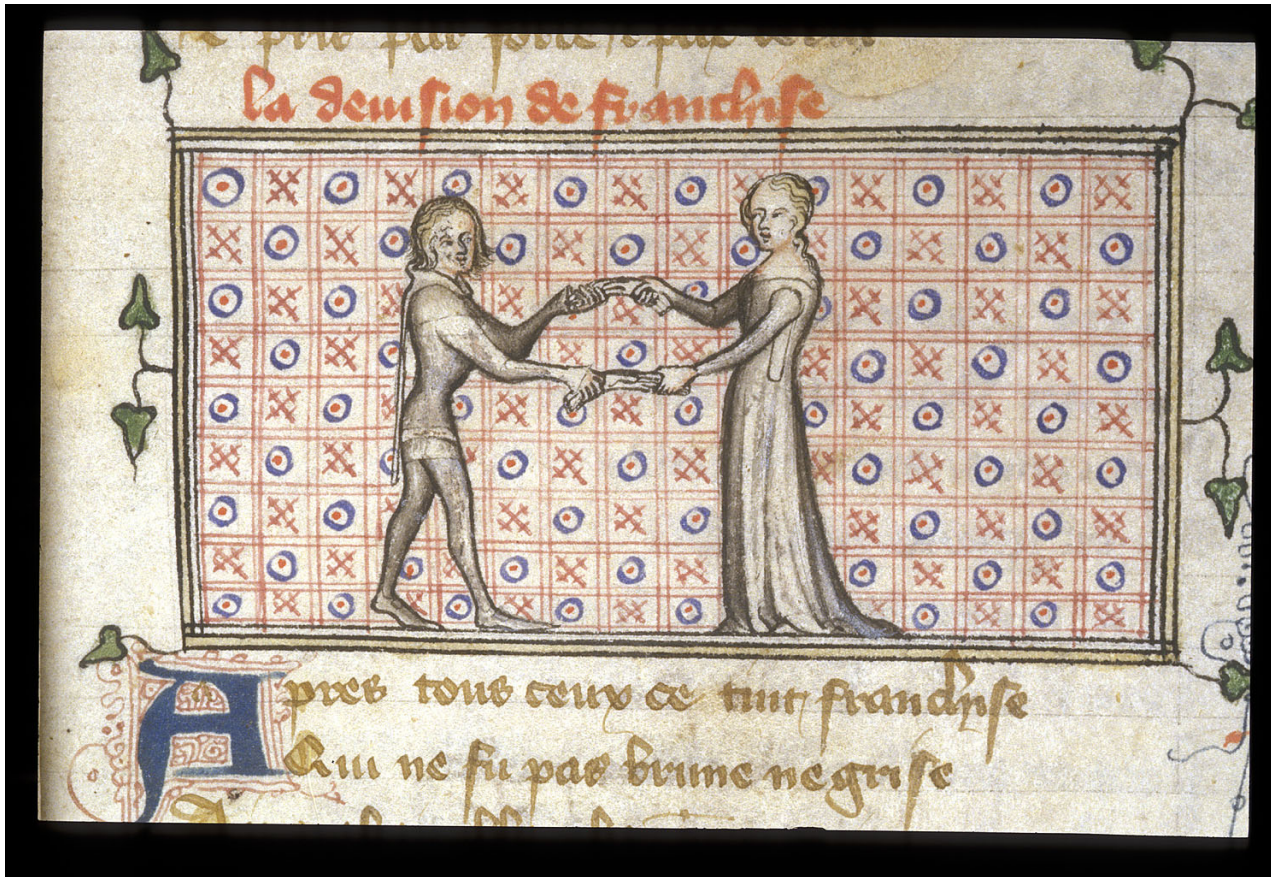 la deuision de franchise
Apres tous ceux ce tint franchise
Qui ne fu pas brune ne grise